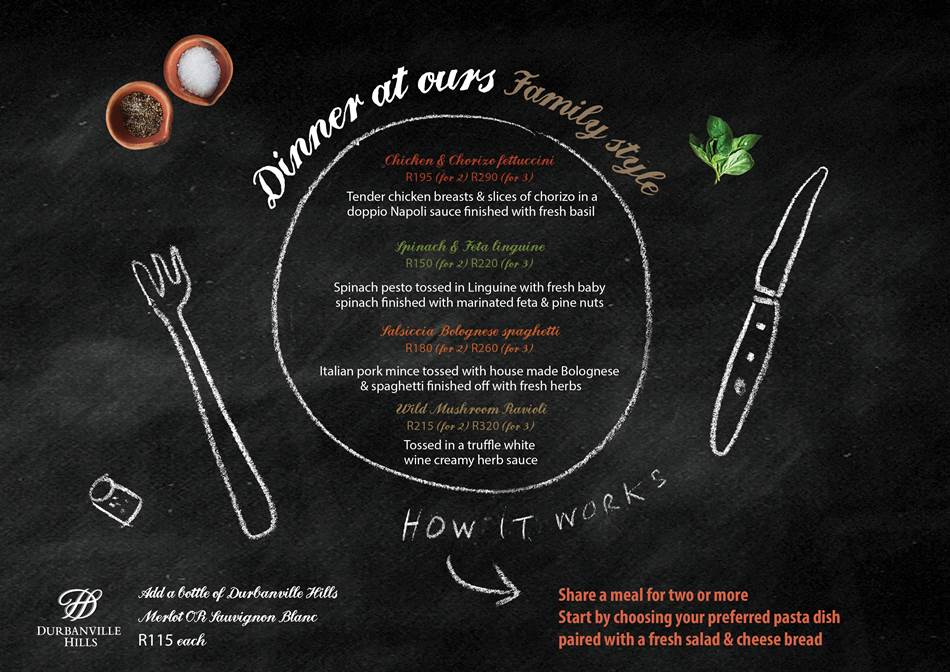 Dinner at ours Family style
Chicken & Chorizo fettuccini
R195 (for 2) R290 (for 3)
Tender chicken breasts & slices of chorizo in a
doppio Napoli sauce finished with fresh basil
Spinach & Feta linguine
R150 (for 2) R220 (for 3)
Spinach pesto tossed in Linguine with fresh baby
spinach finished with marinated feta & pine nuts
Salsiccia Bolognese spaghetti
R180 (for 2) R260 (for 3)
Italian pork mince tossed with house made Bolognese
& spaghetti finished off with fresh herbs
Wild Mushroom Ravioli
R215 (for 2) R320 (for 3)
Tossed in a truffle white
wine creamy herb sauce
HOW IT WORKS
Add a bottle of Durbanville Hills
Merlot OR Sauvignon Blanc
R115 each
DH
DURBANVILLE
HILLS
Share a meal for two or more
Start by choosing your preferred pasta dish
paired with a fresh salad & cheese bread